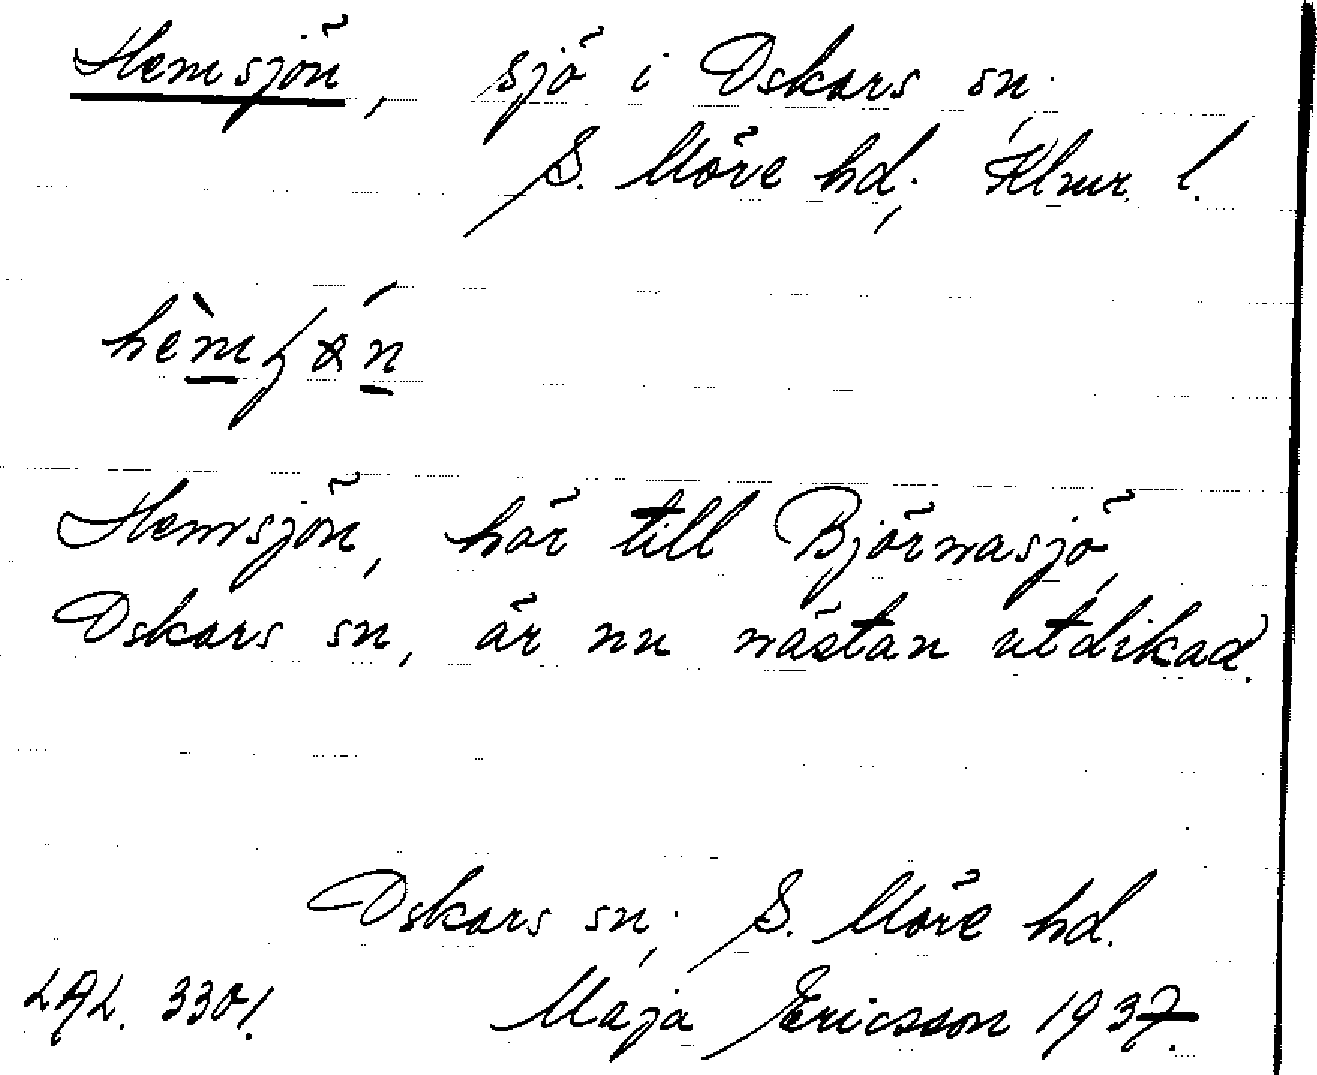 Hemsjön, sjö i Oskars sn,
S. Möre hd, Klmr. l.
Hemsjön, hör till Björnasjö,
Oskars sn, är nu nästan utdikad.
Oskars sn, S. Möre hd.
LAL. 3301. Maja Ericsson 1937.